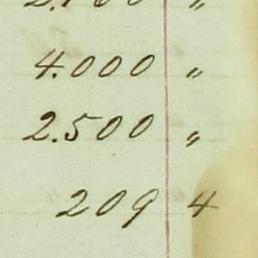 4.000 "
2.500 "
209 4